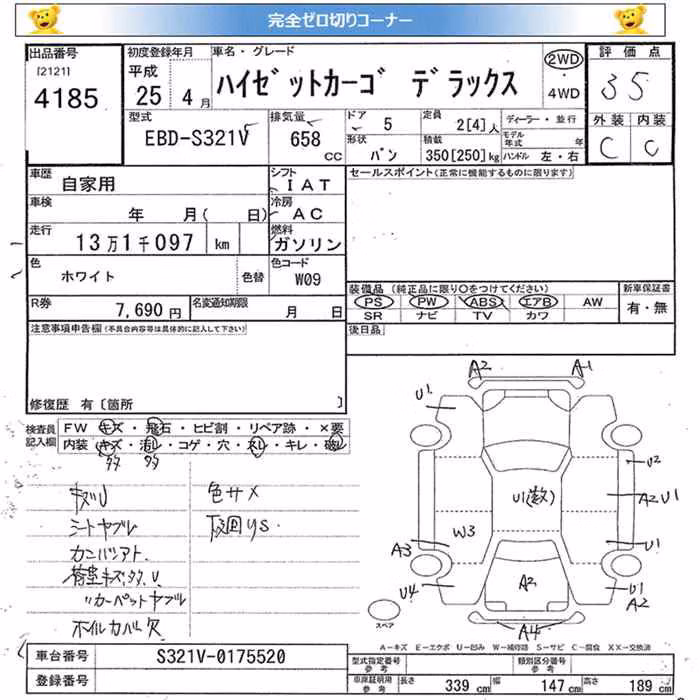 完全ゼロ切りコーナー
出品番号 [2121] 4185
初度登録年月 平成 25 4月
車名・グレード ハイゼットカーゴ デラックス
2WD・4WD
評価点 35
型式 EBD-S321V
排気量 658 CC
ドア 5
定員 2[4]人
ディーラー・並行
形状 バン
積載 350[250]kg
モデル年式 年
ハンドル 左・右
外装 内装
C C
車歴 自家用
シフト IAT
セールスポイント(正常に機能するものに限ります)
車検 年 月( 日)
冷房 AC
走行 13万1千097 km
燃料 ガソリン
色 ホワイト 色替
色コード W09
装備品(純正品に限り○をつけてください)
新車保証書 有・無
PS PW ABS エアB AW
SR ナビ TV カワ
R券 7,690円
名変通知期限 月 日
後日品
注意事項申告欄(不具合内容等は具体的に記入して下さい)
修復歴 有〔箇所 〕
検査員記入欄
FW キズ・飛石・ヒビ割・リペア跡・×要
内装 キズ・汚レ・コゲ・穴・スレ・キレ・破レ
タタ タタ
キズU 色サメ
シートヤブレ 下回りS
カンバンアト
荷室キズ,タタ,U
〃カーペットヤブレ
ホイルカバー欠
A2 A1
U1
U2
U1(数)
A2 U1
W3
A3 U1
U4 A2 U1 A2
A4
スペア
A-キズ E-エクボ U-凹み W-補修跡 S-サビ C-腐食 XX-交換済
車台番号 S321V-0175520
型式指定番号 参考
類別区分番号 参考
登録番号
車庫証明用 参考 長さ 339cm 幅 147cm 高さ 189cm